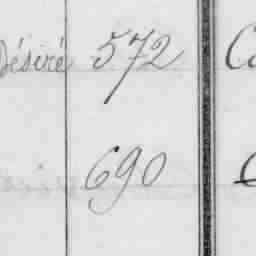 Désiré 572
690